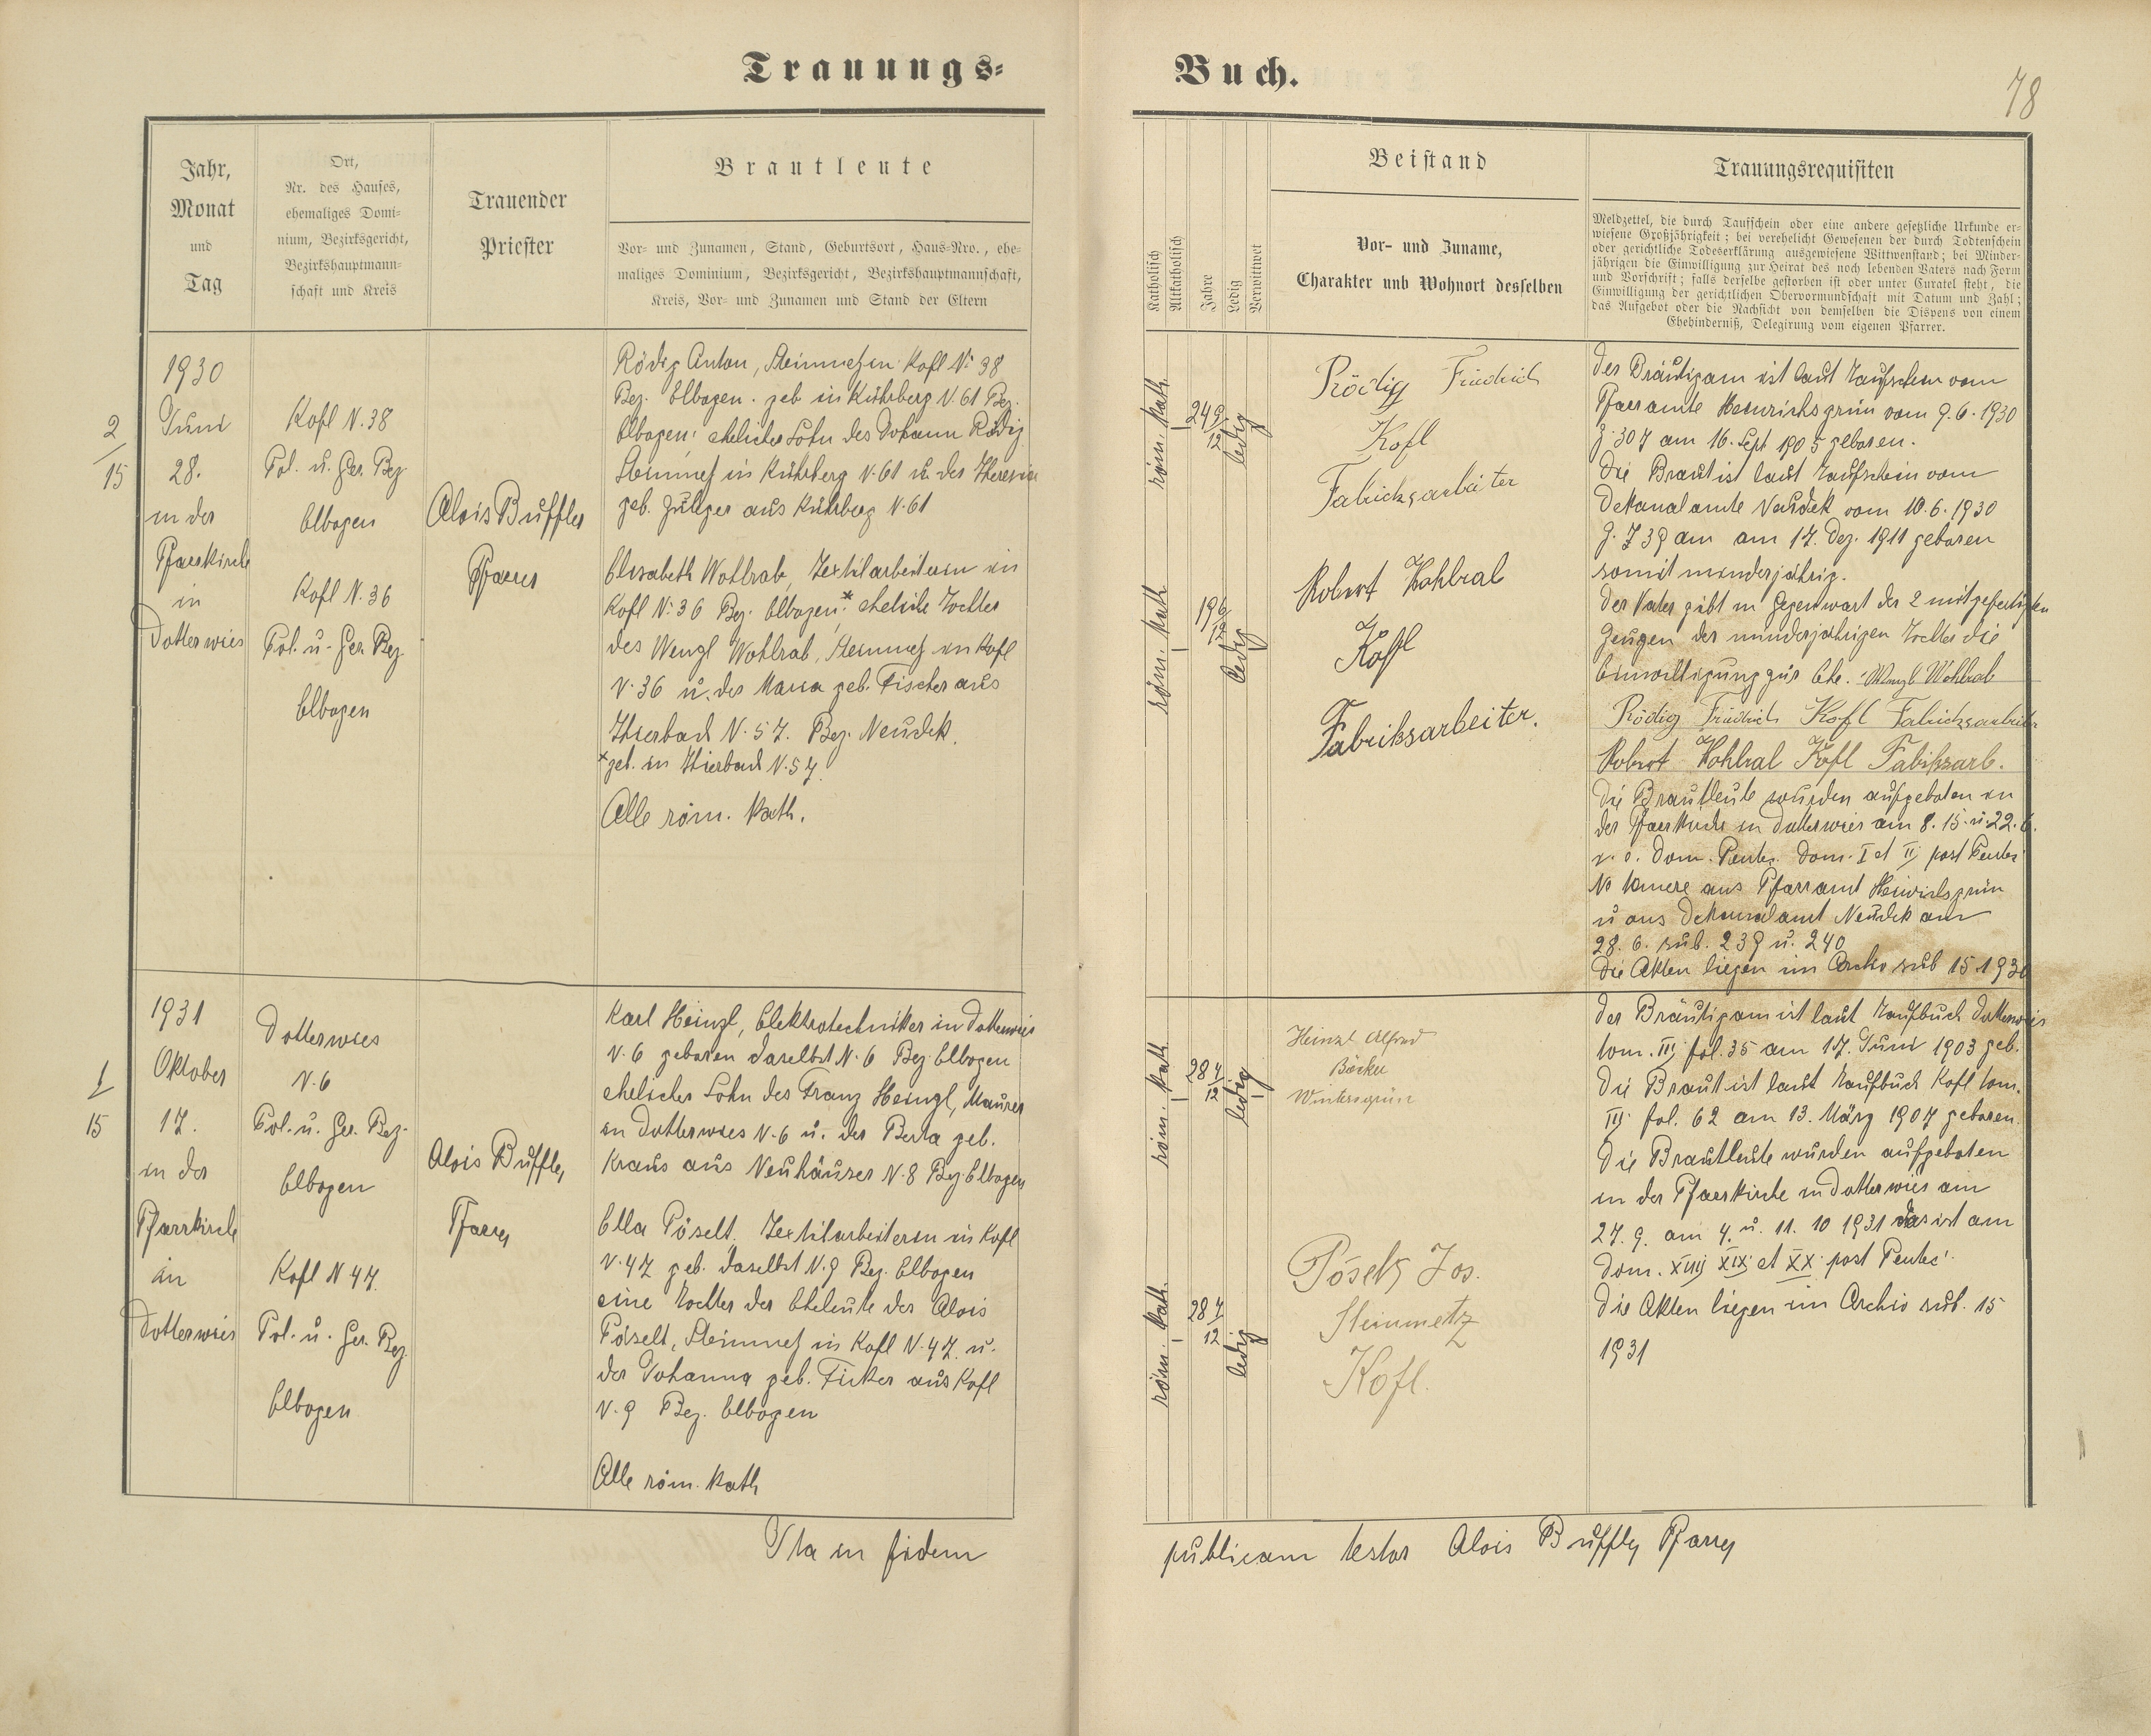 Trauungs-
Buch.
78
Jahr,
Monat
und
Tag
Ort,
Nr. des Hauses,
ehemaliges Domi-
nium, Bezirksgericht,
Bezirkshauptmann-
schaft und Kreis
Trauender
Priester
Brautleute
Vor- und Zunamen, Stand, Geburtsort, Haus-Nro., ehe-
maliges Dominium, Bezirksgericht, Bezirkshauptmannschaft,
Kreis, Vor- und Zunamen und Stand der Eltern
Katholisch
Altkatholisch
Jahre
Ledig
Verwittwet
Beistand
Vor- und Zuname,
Charakter und Wohnort desselben
Trauungsrequisiten
Meldzettel, die durch Taufschein oder eine andere gesetzliche Urkunde er-
wiesene Großjährigkeit; bei verehelicht Gewesenen der durch Todtenschein
oder gerichtliche Todeserklärung ausgewiesene Wittwenstand; bei Minder-
jährigen die Einwilligung zur Heirat des noch lebenden Vaters nach Form
und Vorschrift; falls derselbe gestorben ist oder unter Curatel steht, die
Einwilligung der gerichtlichen Obervormundschaft mit Datum und Zahl;
das Aufgebot oder die Nachsicht von demselben die Dispens von einem
Ehehinderniß, Delegirung vom eigenen Pfarrer.
2
15
1930
Juni
28.
in der
Pfarrkirche
in
Dotterwies
Kofl N. 38
Pol. u. Ger. Bez.
Elbogen
Kofl N. 36
Pol. u. Ger. Bez.
Elbogen
Alois Buffler
Pfarrer
Rödig Anton, Steinmetz in Kofl N: 38
Bez. Elbogen. geb in Kührberg N. 61 Bez.
Elbogen: ehelicher Sohn des Johann Rödig
Steinmetz in Kührberg N. 61 u. der Theresia
geb. aus Kührberg N. 61
Elisabeth Wohlrab, Textilarbeiterin in
Kofl N: 36 Bez. Elbogen;* eheliche Tochter
des Wenzl Wohlrab, Steinmetz in Kofl
N. 36 u. der Maria geb. Fischer aus
Thierbach N. 57. Bez. Neudek.
*geb. in Thierbach N. 57.
Alle röm. kath.
röm. kath.
24 9/12
ledig
röm. kath
19 6/12
ledig
Rödig Friedrich
Kofl
Fabricksarbeiter
Robert Wohlrab
Kofl
Fabriksarbeiter.
Der Bräutigam ist laut Taufschein vom
Pfarramte Heinrichsgrün vom 9.6.1930
Z. 307 am 16. Sept 1905 geboren.
Die Braut ist laut Taufschein vom
Dekanalamte Neudek vom 10.6.1930
Z. 739 am am 17. Dez. 1911 geboren
somit minderjährig.
Der Vater gibt in Gegenwart der 2 mitgefertigten
Zeugen der minderjährigen Tochter die
Einwilligung zur Ehe. Wenzl Wohlrab
Rödig Friedrich Kofl Fabricksarbeiter
Robert Wohlrab Kofl Fabiksarb.
Die Brautleute wurden aufgeboten in
der Pfarrkirche in Dotterwies am 8. 15. u. 22. 6.
d. i. Dom. Pentec. Dom. I et II post Pentec.
aus Pfarramt Heinrichsgrün
u aus Dekanalamt Neudek am
28. 6. sub. 239 u. 240
Die Akten liegen im Archiv sub 15 1930
1
15
1931
Oktober
17.
in der
Pfarrkirche
in
Dotterwies
Dotterwies
N. 6
Pol. u. Ger. Bez.
Elbogen
Kofl N 47.
Pol. u. Ger. Bez.
Elbogen
Alois Buffler
Pfarrer
Karl Heinzl, Elektrotechniker in Dotterwies
N. 6 geboren daselbst N. 6 Bez. Elbogen
ehelicher Sohn des Franz Heinzl, Maurer
in Dotterwies N. 6 u. der Berta geb.
Kraus aus Neuhäuser N. 8 Bez Elbogen
Ella Pöselt, Textilarbeiterin in Kofl
N. 47 geb. daselbst N. 9 Bez. Elbogen
eine Tochter der Eheleute des Alois
Pöselt, Steinmetz in Kofl N. 47. u.
der Johanna geb. Ficker aus Kofl
N. 9 Bez. Elbogen
Alle röm. kath
röm. kath
28 4/12
ledig
röm. kath.
28 7/12
ledig
Heinzl Alfred
Bäcker
Wintersgrün
Pöselt Jos.
Steinmetz
Kofl.
Der Bräutigam ist laut Taufbuch Dotterwies
tom. III fol. 35 am 17. Juni 1903 geb.
Die Braut ist laut Taufbuch Kofl tom.
III fol. 62 am 13. März 1907 geboren.
Die Brautleute wurden aufgeboten
in der Pfarrkirche in Dotterwies am
27. 9. am 4. u. 11. 10 1931 das ist am
Dom. XVIII XIX et XX post Pentec.
Die Akten liegen im Archiv sub. 15
1931
Ita in fidem
publicam testor Alois Buffler Pfarrer